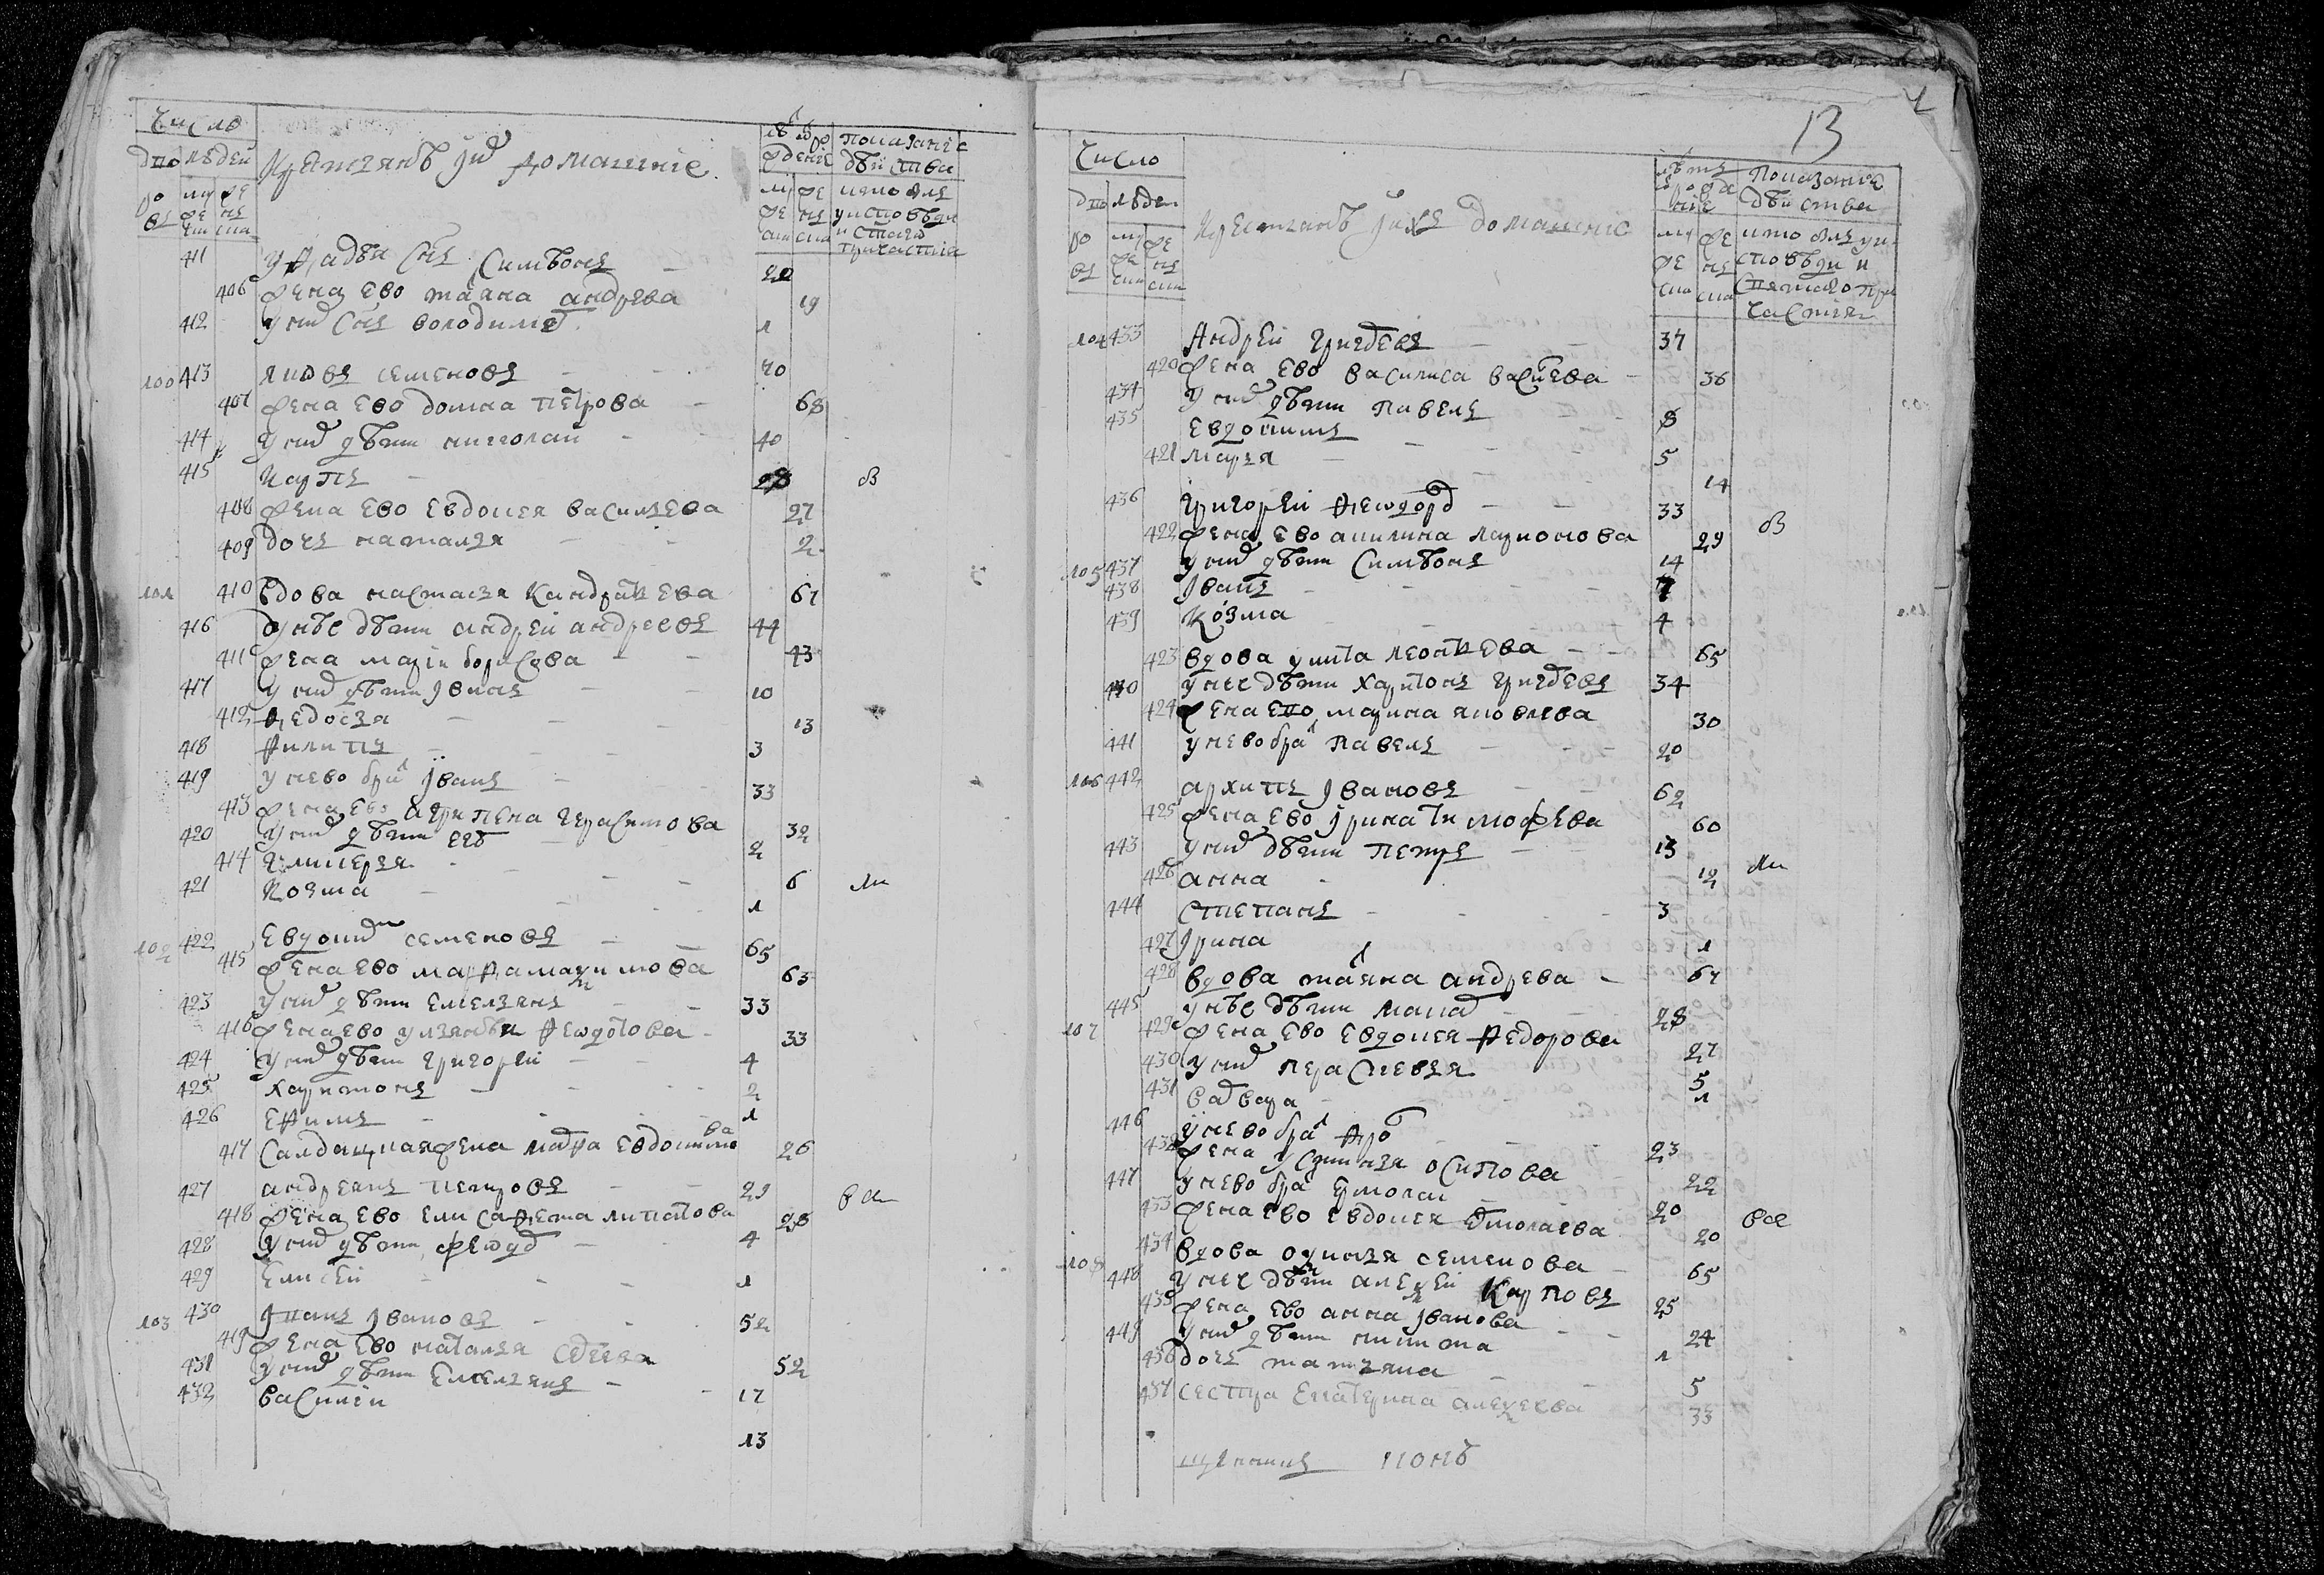 Число
дво людей
Крестьянъ ихъ домашніе
показаніе
действа
ро му же
въ же нъ
ска ска
му же кто былъ
у исповеди
и святаго
причастія
411 у Фадѣи снъ Симѣонъ 20
406 жена ево таяна андрева 19
412 у них снъ володимер 1
100 413 яковъ семеновъ 70
407 жена ево домна петрова 68
414 у них дѣти николаи 40
415 карпъ 28 в
408 жена ево евдокея василева 27
409 дочь наталья 2
101 410 вдова настасья кандратева 67
416 у нѣе дѣти андреи андреевъ 44
411 жена маріи борисова 43
417 у них дѣти Іванъ 10
412 федосья 13
418 филипъ 3
419 у нево брат іванъ 33
413 жена ево агрипена герасимова 32
420 у них дѣти 2
414 гликерья 6 ли
421 козма 1
102 422 евдоким семеновъ 65
415 жена ево марфа макимова 63
423 у них дѣти емельянъ 33
416 жена ево ульянѣи феодотова 33
424 у них дѣти григореи 4
425 харитонъ 2
426 ефимъ 1
417 салдацкая жена мавра евдокимова 26
427 андреянъ петровъ 29 ва
418 жена ево елисафета липатова 28
428 у них дѣти феодор 4
429 елисеи 1
103 430 Іпанъ Івановъ 52
419 жена ево наталья 52
431 у них дѣти емельянъ 17
432 василеи 13
13
Число
дво людеи
Крестьянъ ихъ домашніе
Показаніе
действа
ро му же
въ
кто былъ у и
споведи и
святаго при
частія
104 433 Андреи григоревъ 37
420 жена ево василиса василева 36
434 у них дѣти павелъ 8
435 евдокимъ 5
421 марья 14
436 григореи феодоров 33 в
422 жена ево акилина ларионова 29
105 437 у них дѣти Симѣонъ 14
438 Іванъ 7
439 козма 4
423 вдова улита леонтева 65
440 у нее дѣти харитонъ григоревъ 34
424 жена ево марина яковлева 30
441 у нево брат павелъ 20
106 442 архипъ Івановъ 62
425 жена ево Ірина тимофева 60
443 у них дѣти петръ 13
426 анна 12 ли
444 степанъ 3
427 Ірина 1
428 вдова таяна андрева 67
445 у нѣе дѣти макар 28
107 429 жена ево евдокея федорова 27
430 у них парасковья 5
431 варвара 1
446 у нево брат фрол 23
432 жена устинья осипова 22
447 у нево брат ермолаи 20
433 жена ево евдокея ермолаева 20 вав
434 вдова огупья семенова 65
108 448 у нее дѣти алексеи карповъ 25
435 жена ево анна іванова 24
449 у них дѣти никита 1
436 дочь татьяна 5
437 сестра екатерина алексеева 33
іонъ